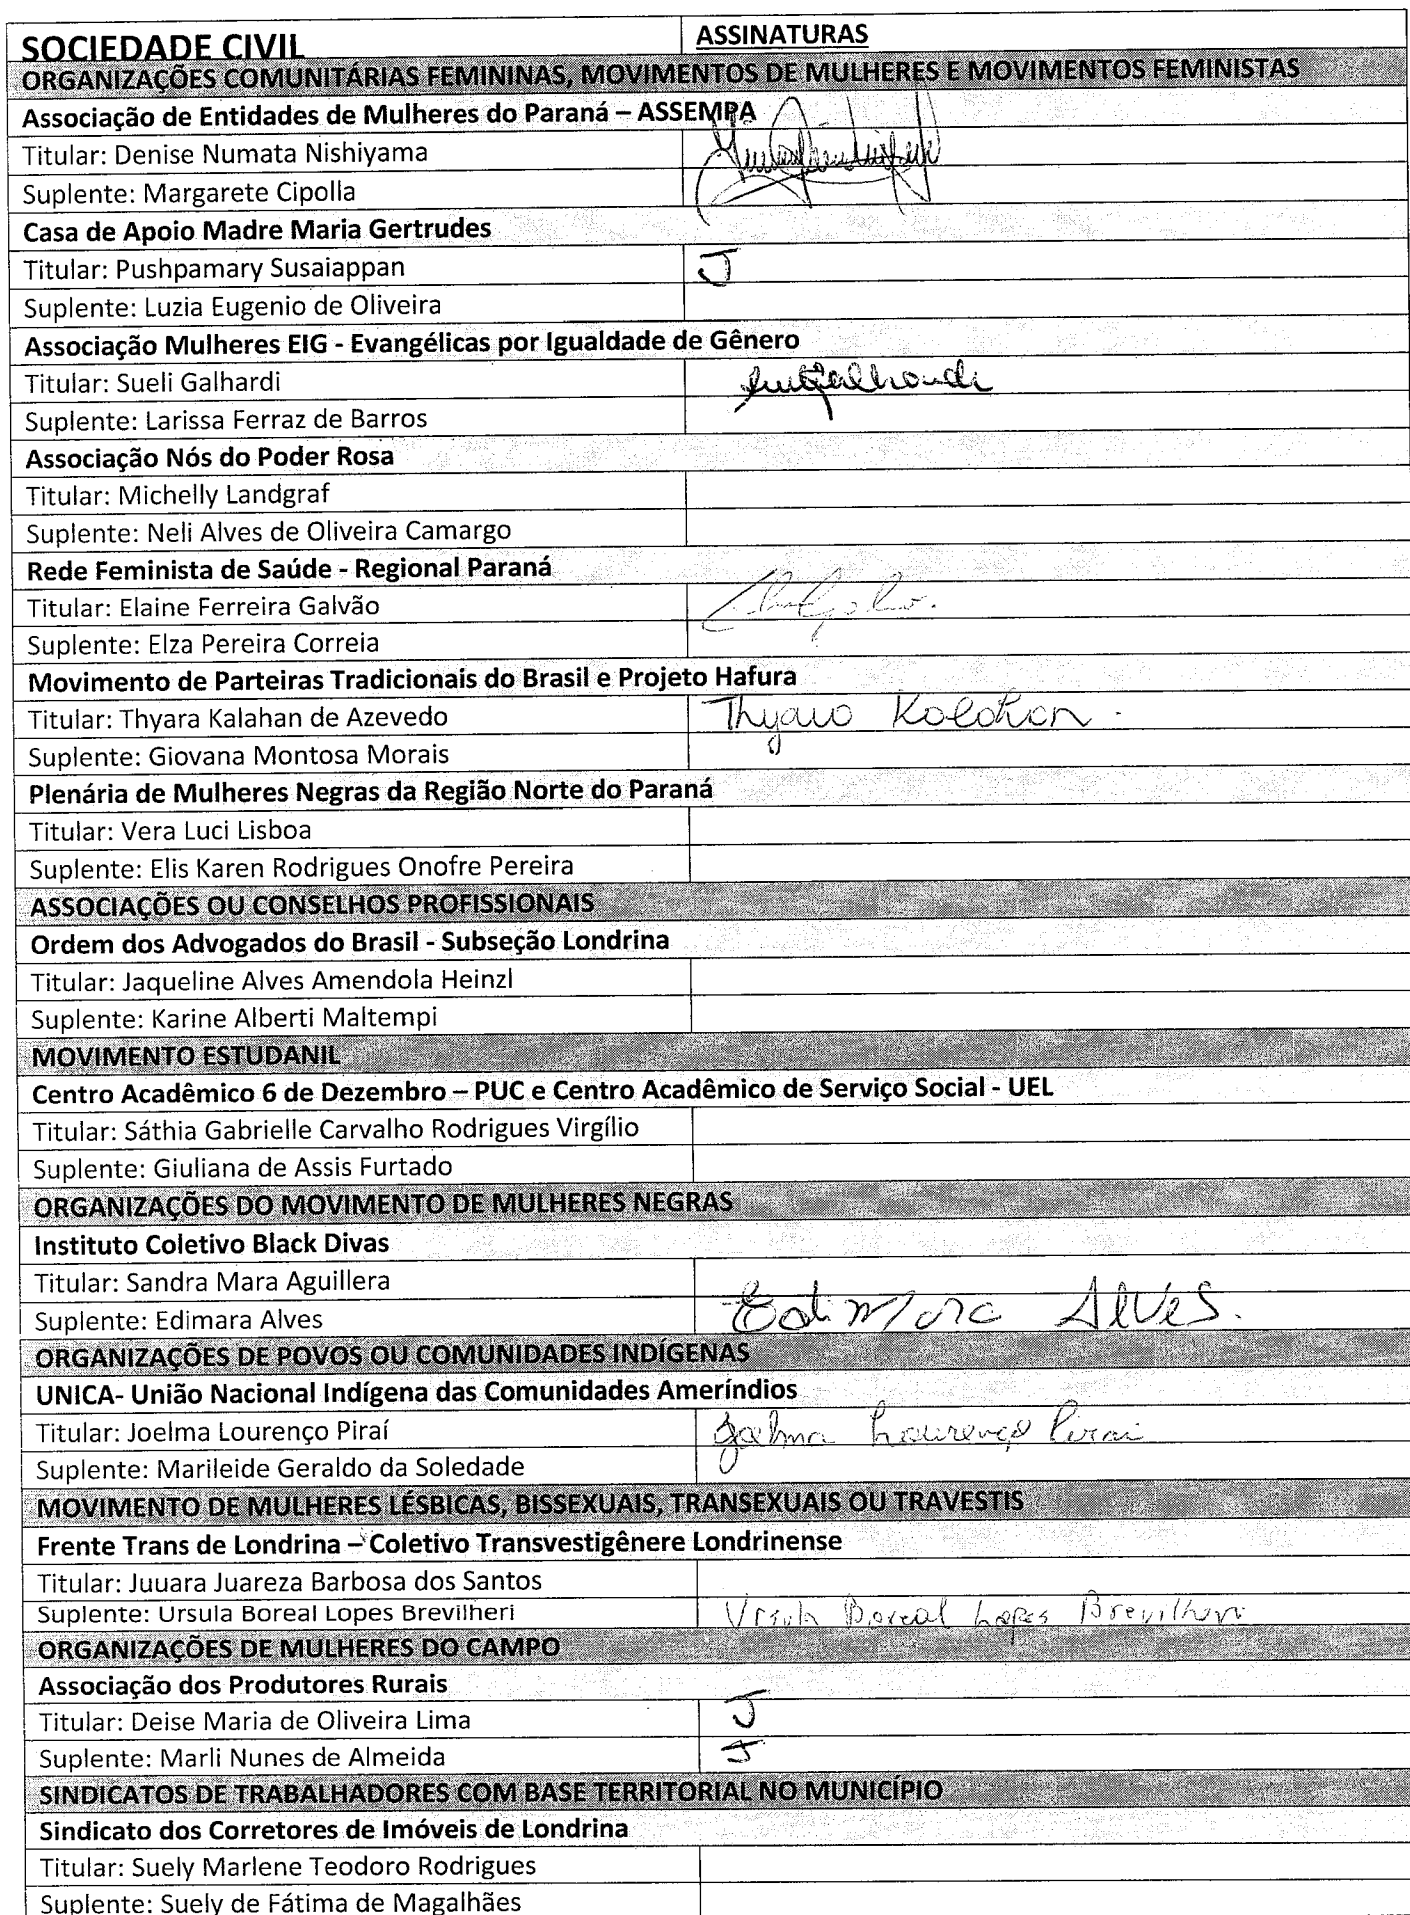 SOCIEDADE CIVIL
ASSINATURAS
ORGANIZAÇÕES COMUNITÁRIAS FEMININAS, MOVIMENTOS DE MULHERES E MOVIMENTOS FEMINISTAS
Associação de Entidades de Mulheres do Paraná – ASSEMPA
Titular: Denise Numata Nishiyama
Suplente: Margarete Cipolla
Casa de Apoio Madre Maria Gertrudes
Titular: Pushpamary Susaiappan J
Suplente: Luzia Eugenio de Oliveira
Associação Mulheres EIG - Evangélicas por Igualdade de Gênero
Titular: Sueli Galhardi
Suplente: Larissa Ferraz de Barros
Associação Nós do Poder Rosa
Titular: Michelly Landgraf
Suplente: Neli Alves de Oliveira Camargo
Rede Feminista de Saúde - Regional Paraná
Titular: Elaine Ferreira Galvão
Suplente: Elza Pereira Correia
Movimento de Parteiras Tradicionais do Brasil e Projeto Hafura
Titular: Thyara Kalahan de Azevedo Thyara Kalahan.
Suplente: Giovana Montosa Morais
Plenária de Mulheres Negras da Região Norte do Paraná
Titular: Vera Luci Lisboa
Suplente: Elis Karen Rodrigues Onofre Pereira
ASSOCIAÇÕES OU CONSELHOS PROFISSIONAIS
Ordem dos Advogados do Brasil - Subseção Londrina
Titular: Jaqueline Alves Amendola Heinzl
Suplente: Karine Alberti Maltempi
MOVIMENTO ESTUDANIL
Centro Acadêmico 6 de Dezembro – PUC e Centro Acadêmico de Serviço Social - UEL
Titular: Sáthia Gabrielle Carvalho Rodrigues Virgílio
Suplente: Giuliana de Assis Furtado
ORGANIZAÇÕES DO MOVIMENTO DE MULHERES NEGRAS
Instituto Coletivo Black Divas
Titular: Sandra Mara Aguillera
Suplente: Edimara Alves EdiMara Alves.
ORGANIZAÇÕES DE POVOS OU COMUNIDADES INDÍGENAS
UNICA- União Nacional Indígena das Comunidades Ameríndios
Titular: Joelma Lourenço Piraí Joelma Lourenço Pirai
Suplente: Marileide Geraldo da Soledade
MOVIMENTO DE MULHERES LÉSBICAS, BISSEXUAIS, TRANSEXUAIS OU TRAVESTIS
Frente Trans de Londrina – Coletivo Transvestigênere Londrinense
Titular: Juuara Juareza Barbosa dos Santos
Suplente: Ursula Boreal Lopes Brevilheri Ursula Boreal Lopes Brevilheri
ORGANIZAÇÕES DE MULHERES DO CAMPO
Associação dos Produtores Rurais
Titular: Deise Maria de Oliveira Lima J
Suplente: Marli Nunes de Almeida J
SINDICATOS DE TRABALHADORES COM BASE TERRITORIAL NO MUNICÍPIO
Sindicato dos Corretores de Imóveis de Londrina
Titular: Suely Marlene Teodoro Rodrigues
Suplente: Suely de Fátima de Magalhães